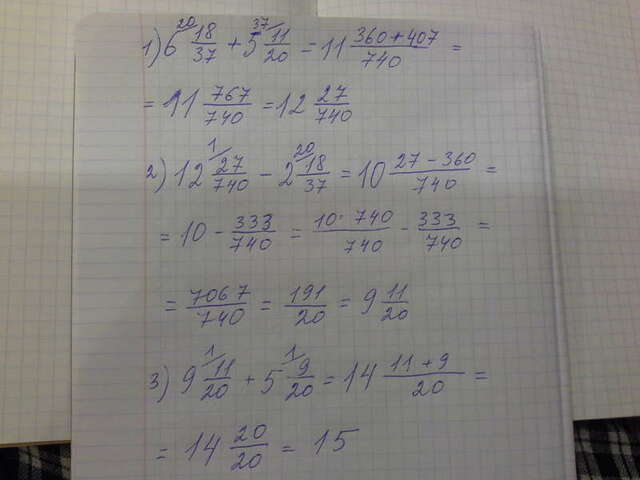 1) 6 20/ 18/37 + 5 37/ 11/20 = 11 (360+407)/740 =
= 11 767/740 = 12 27/740
2) 12 1/ 27/740 - 2 20/ 18/37 = 10 (27-360)/740 =
= 10 - 333/740 = (10·740)/740 - 333/740 =
= 7067/740 = 191/20 = 9 11/20
3) 9 1/ 11/20 + 5 1/ 9/20 = 14 (11+9)/20 =
= 14 20/20 = 15